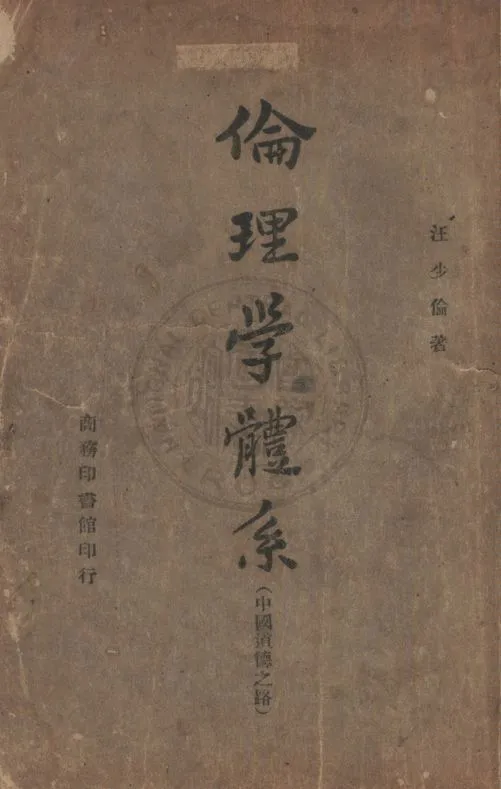 汪少倫著
倫理学體系
(中國道德之路)
商務印書館印行